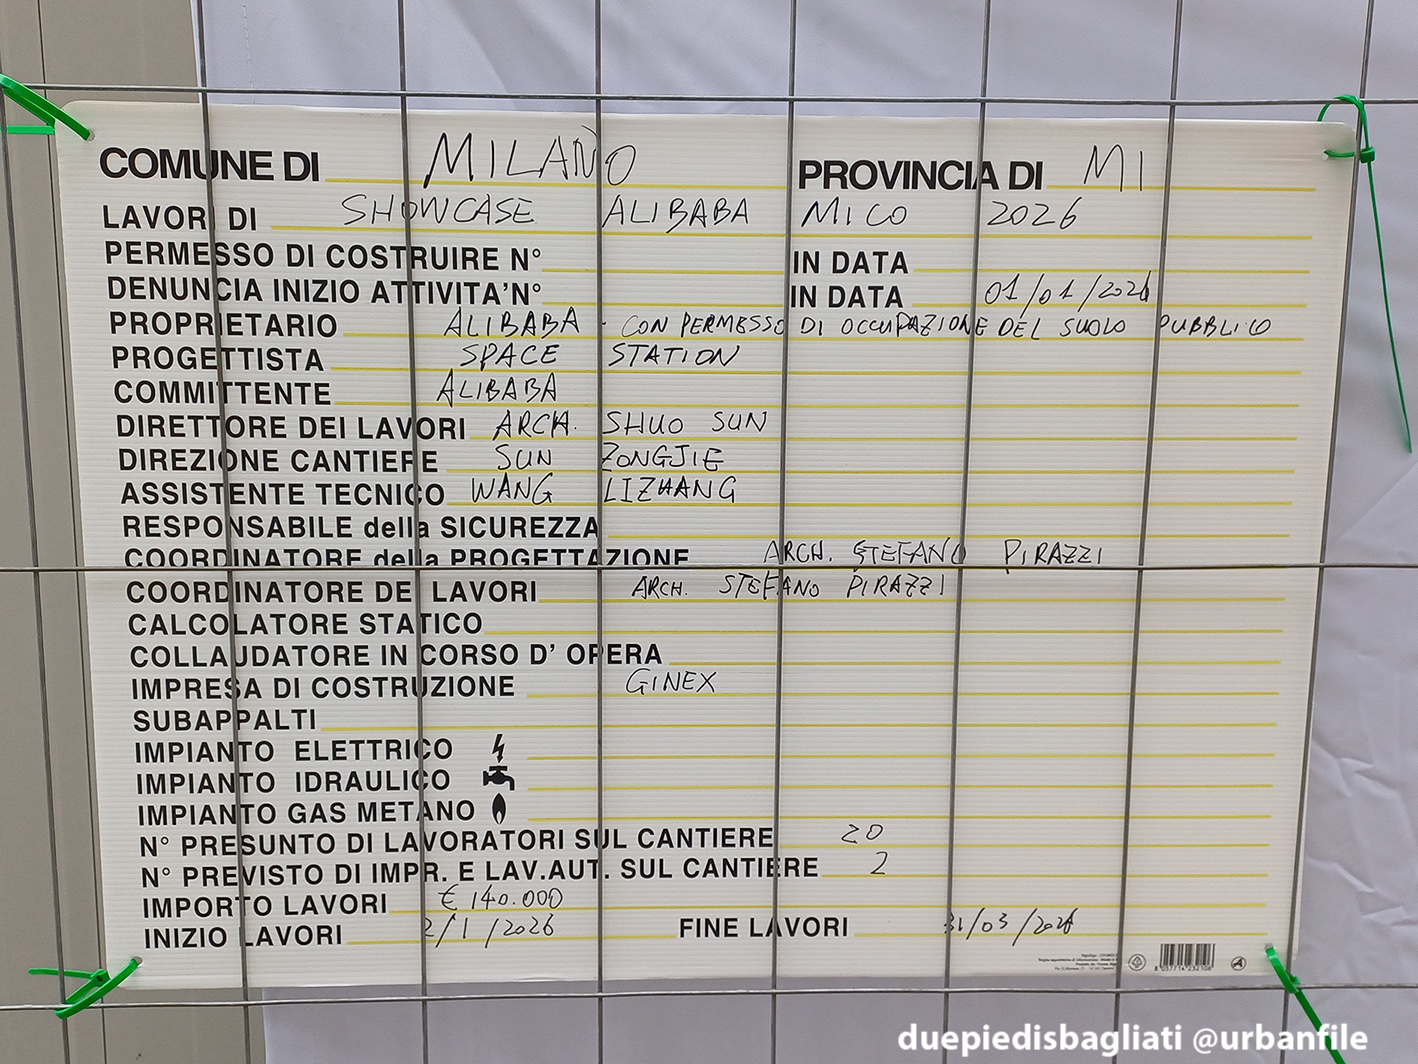 COMUNE DI MILANO PROVINCIA DI MI
LAVORI DI SHOWCASE ALIBABA MICO 2026
PERMESSO DI COSTRUIRE N° IN DATA
DENUNCIA INIZIO ATTIVITA'N° IN DATA 01/01/2026
PROPRIETARIO ALIBABA - CON PERMESSO DI OCCUPAZIONE DEL SUOLO PUBBLICO
PROGETTISTA SPACE STATION
COMMITTENTE ALIBABA
DIRETTORE DEI LAVORI ARCH. SHUO SUN
DIREZIONE CANTIERE SUN ZONGJIE
ASSISTENTE TECNICO WANG LIZHANG
RESPONSABILE della SICUREZZA
COORDINATORE della PROGETTAZIONE ARCH. STEFANO PIRAZZI
COORDINATORE DEI LAVORI ARCH. STEFANO PIRAZZI
CALCOLATORE STATICO
COLLAUDATORE IN CORSO D' OPERA
IMPRESA DI COSTRUZIONE GINEX
SUBAPPALTI
IMPIANTO ELETTRICO
IMPIANTO IDRAULICO
IMPIANTO GAS METANO
N° PRESUNTO DI LAVORATORI SUL CANTIERE 20
N° PREVISTO DI IMPR. E LAV.AUT. SUL CANTIERE 2
IMPORTO LAVORI € 140.000
INIZIO LAVORI 2/1/2026 FINE LAVORI 31/03/2026
duepiedisbagliati @urbanfile